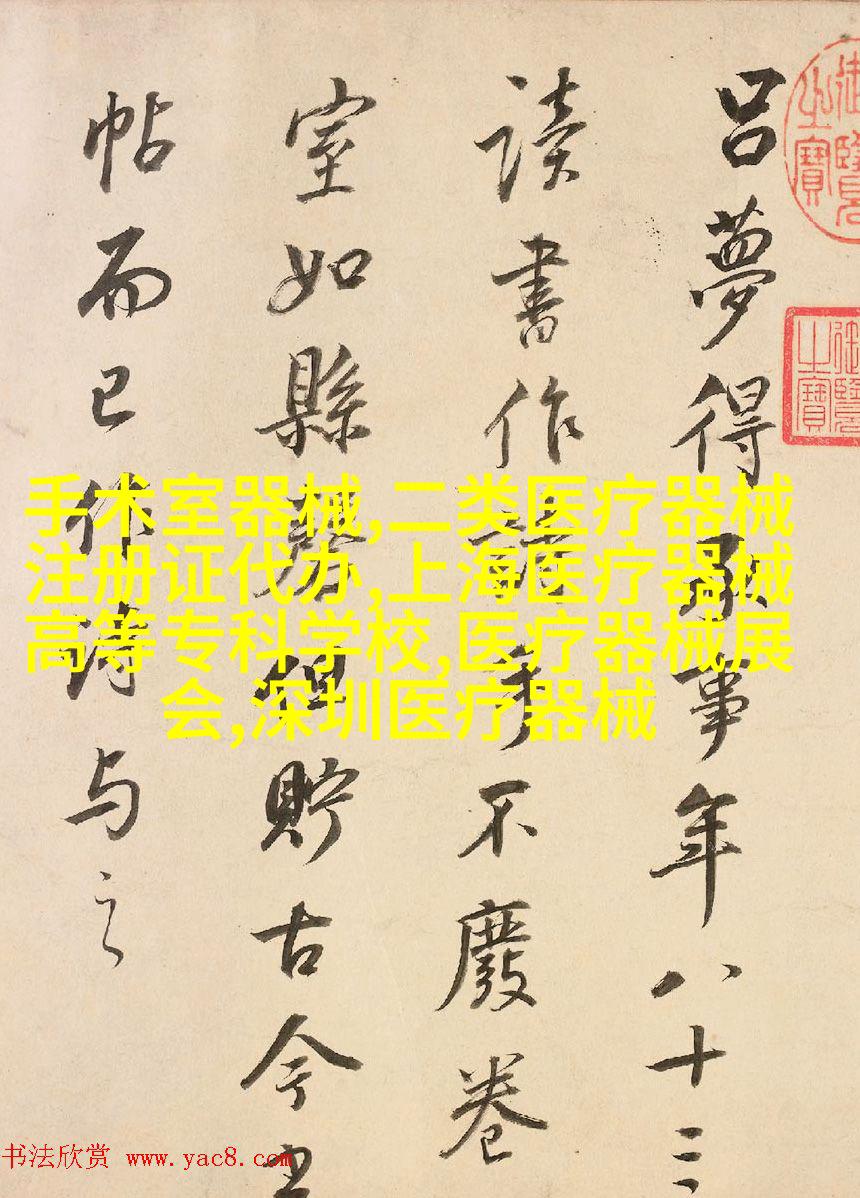 吕夢得承事年八十三
读書作詩手不廢卷
室如縣磬但貯古今書
帖而已作詩与之
御覽之寶
御覽之寶
手术室器械,二类医疗器械
注册证代办,上海医疗器械
高等专科学校,医疗器械展
会,深圳医疗器械
书法欣赏 www.yac8.com